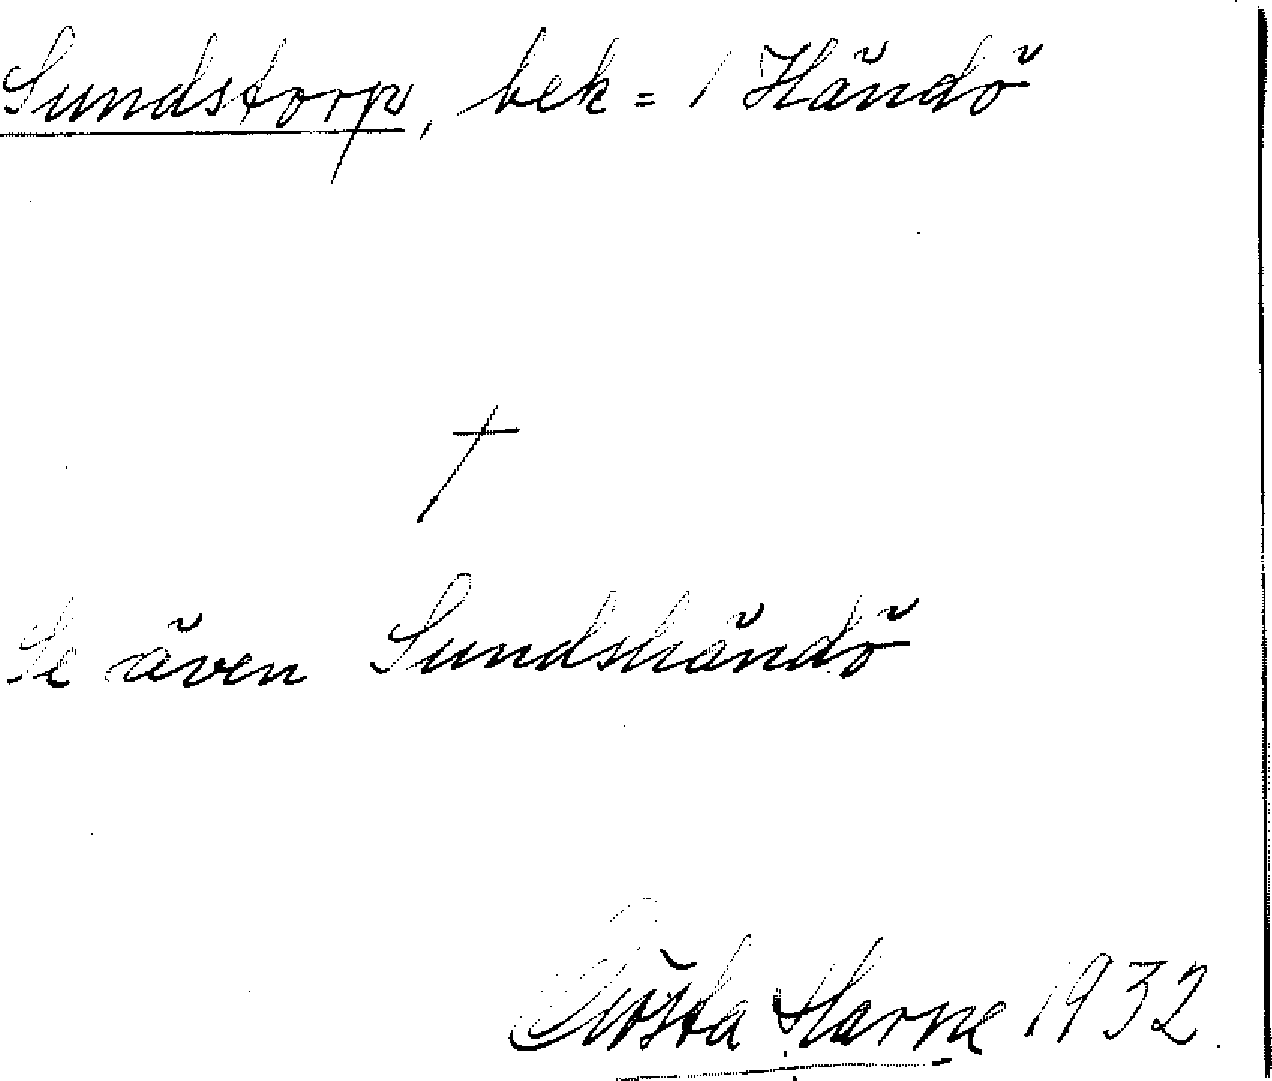 Sundstorp, bek = 1 Händö
†
Se även Sundshändö
Gösta Harne 1932.